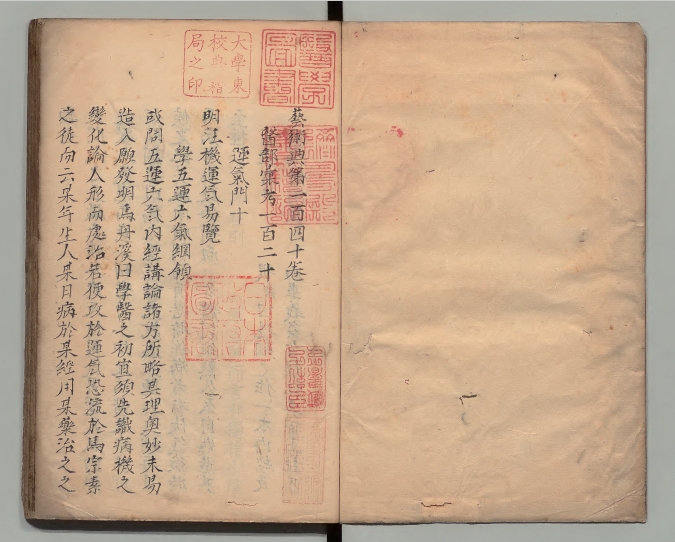 藝術典第一百四十卷
醫部彙考一百二十
運氣門十
明汪機運氣易覽
學五運六氣綱領
或問五運六氣內經講論諸方所略其理奧妙未易
造入願發明焉丹溪曰學醫之初宜須先識病機之
變化論人形而處治若便攻於運氣恐流於馬宗素
之徒而云某年生人某日病於某經用某藥治之之
大學東
校典籍
局之印